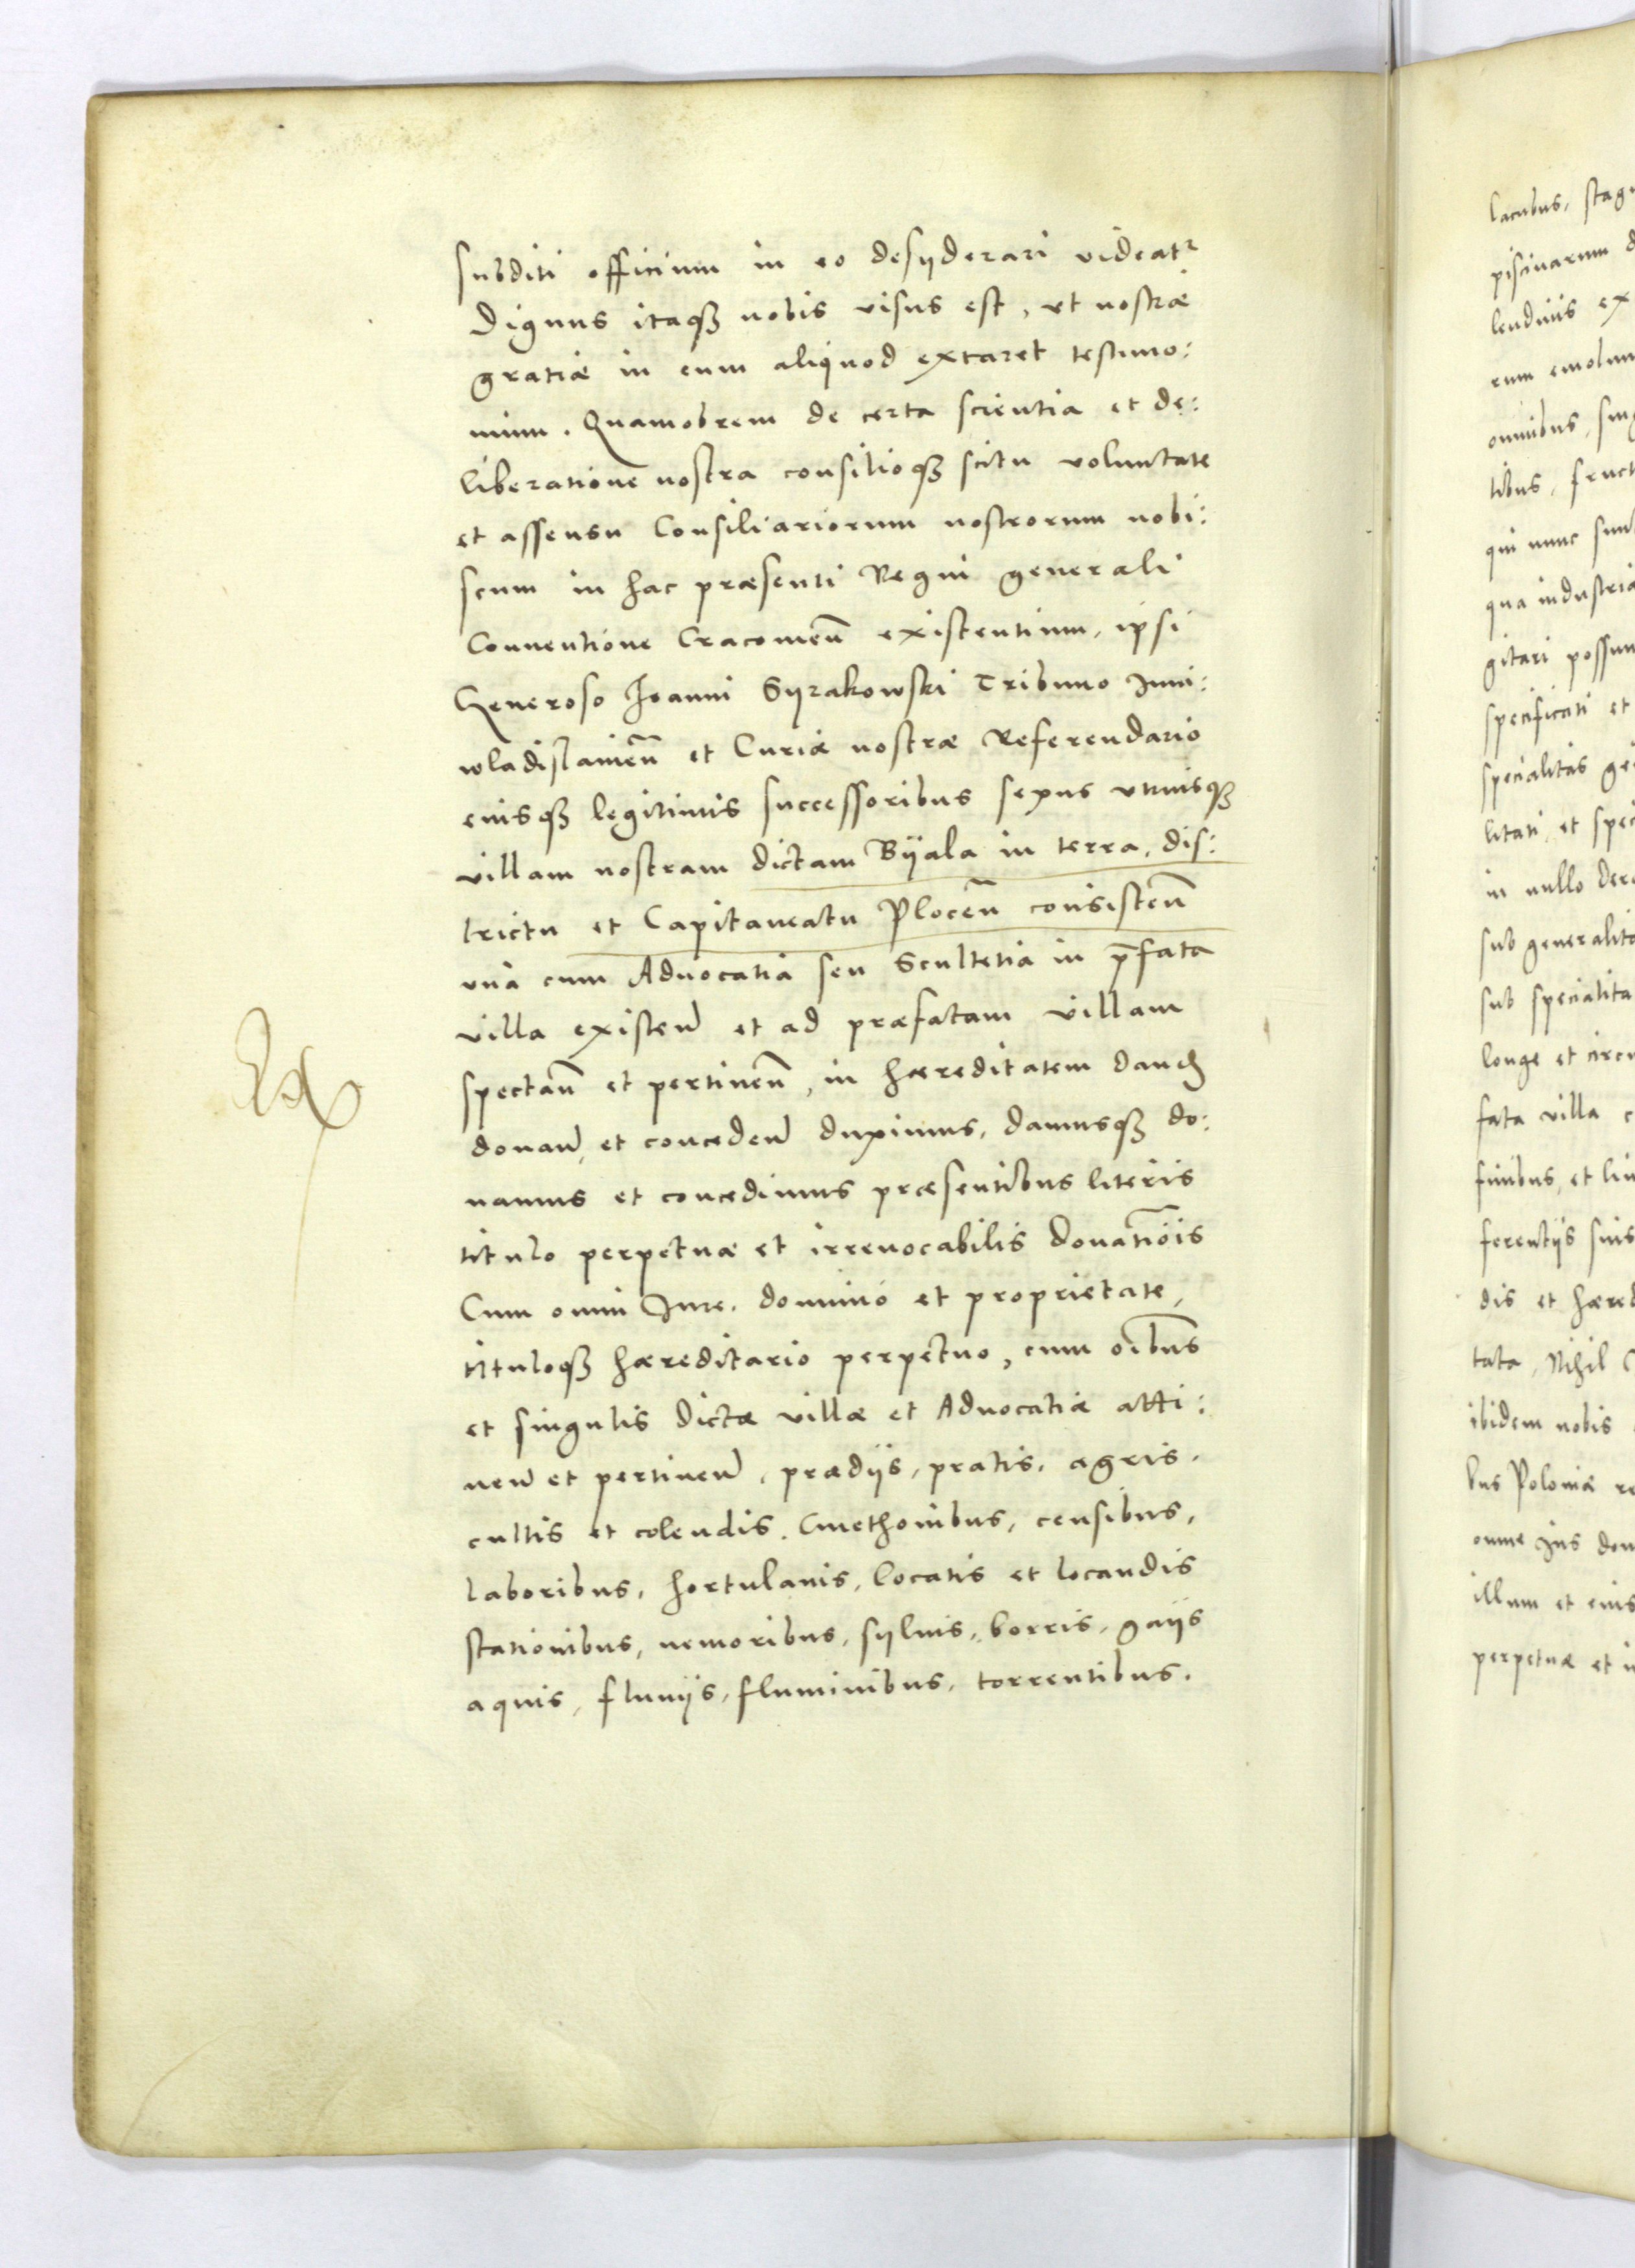 subditi officium in eo desyderari videatr
Dignus itaq3 nobis visus est, vt nostræ
gratiæ in eum aliquod extaret testimo:
nium. Quamobrem de certa scientia et de:
liberatione nostra consilioq3 scitu voluntate
et assensu Consiliariorum nostrorum nobi:
scum in hac præsenti Regni generali
Conuentione Cracouien̄ existentium, ipsi
Generoso Joanni Syrakowski Tribuno Juni:
wladislauien̄ et Curiæ nostræ Referendario
eiusq3 legitimis successoribus sexus vtriusq3
villam nostram dictam Byala in terra, dis:
trictu et Capitaneatu Plocen̄ consisten̄
vna cum Aduocatia seu Scultetia in p̄fata
villa existen̄ et ad præfatam villam
spectan̄ et pertinen̄, in hæreditatem dand
donan̄, et conceden̄ duximus, damusq3 do:
namus et concedimus præsentibus literis
titulo perpetuæ et irreuocabilis donatiōis
Cum omni Jure, dominio et proprietate,
tituloq3 hæreditario perpetuo, cum oībus
et singulis dictæ villæ et Aduocatiæ atti:
nen̄ et pertinen̄, prædijs, pratis, agris,
cultis et colendis, Cmethonibus, censibus,
laboribus, hortulanis, locatis et locandis
stationibus, nemoribus, syluis, borris, gaijs
aquis, fluuijs, fluminibus, torrentibus.
lacubus, stag
piscinarum d
lendinis ex
rum emolum
omnibus, sing
tibus, fruct
qui nunc sunt
qua industria
gitari possun
specificati et
specialitas ge
litati, et spec
in nullo dero
sub generalita
sub specialita
longe et circu
fata villa c
finibus, et lim
ferentijs suis
dis et hæred
tata, Nihil
ibidem nobis
bus Poloniæ re
omne Jus dom
illum et eius
perpetuæ et i